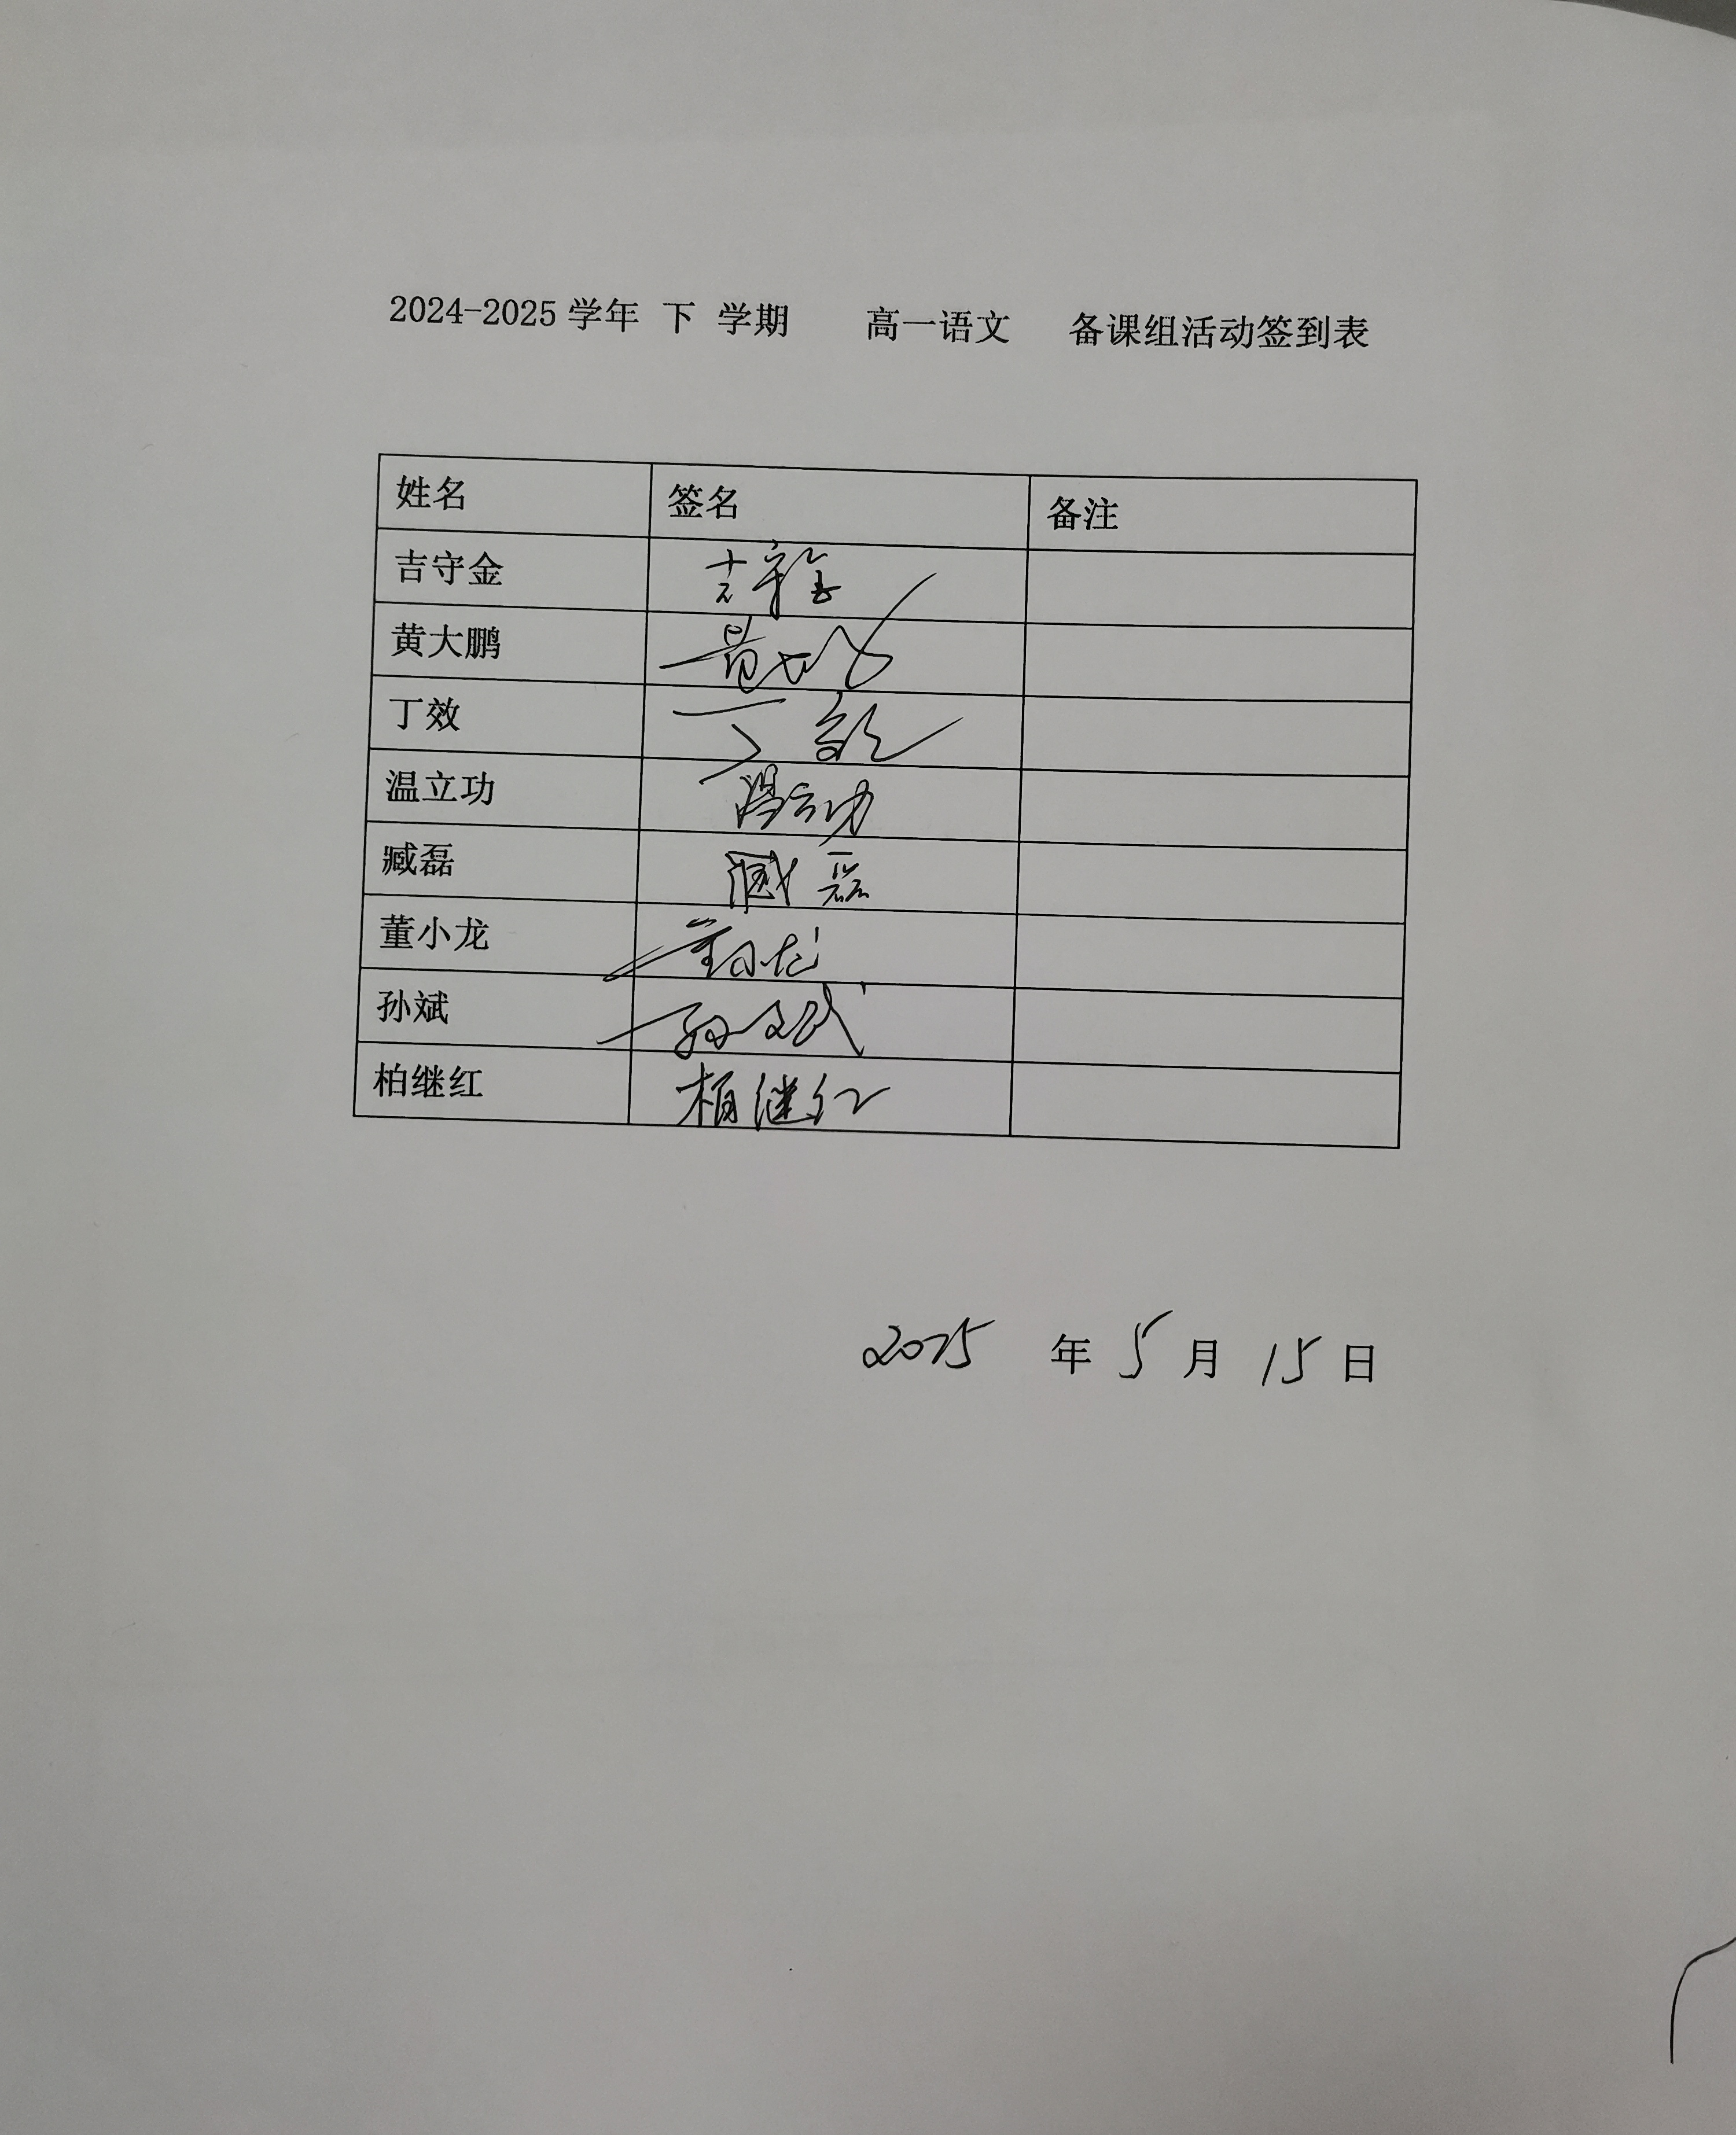 2024-2025 学年 下 学期 高一语文 备课组活动签到表
姓名 签名 备注
吉守金 吉守金
黄大鹏 黄大鹏
丁效 丁效
温立功 温立功
臧磊 臧磊
董小龙 董小龙
孙斌 孙斌
柏继红 柏继红
2025 年 5 月 15 日